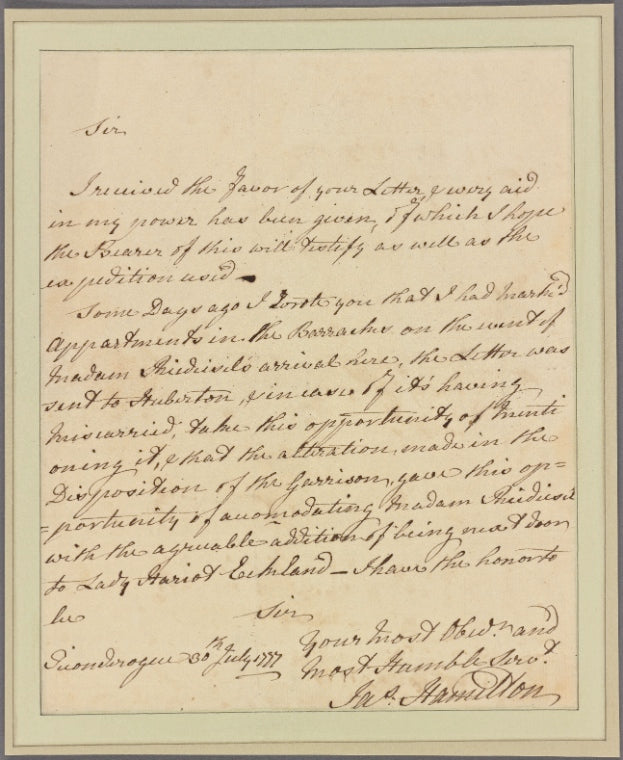 Sir
I received the favor of your Letter, & every aid
in my power has been given, of which I hope
the Bearer of this will testify as well as the
expedition used —
Some Days ago I wrote you that I had mark'd
Appartments in the Barracks on the event of
Madam Riedisels arrival here, the Letter was
sent to Huberton, & in case of it's having
miscarried, take this opportunity of menti
oning it, & that the alteration, made in the
Disposition of the Garrison, gave this op=
=portunity of accomodating Madam Riedisel
with the agreuable addition of being next door
to Lady Hariot Eckland — I have the honor to
be Sir
Your most Obed.^t and
Ticonderogue 30^th July 1777 most Humble Serv.^t
Ja^s. Hamilton